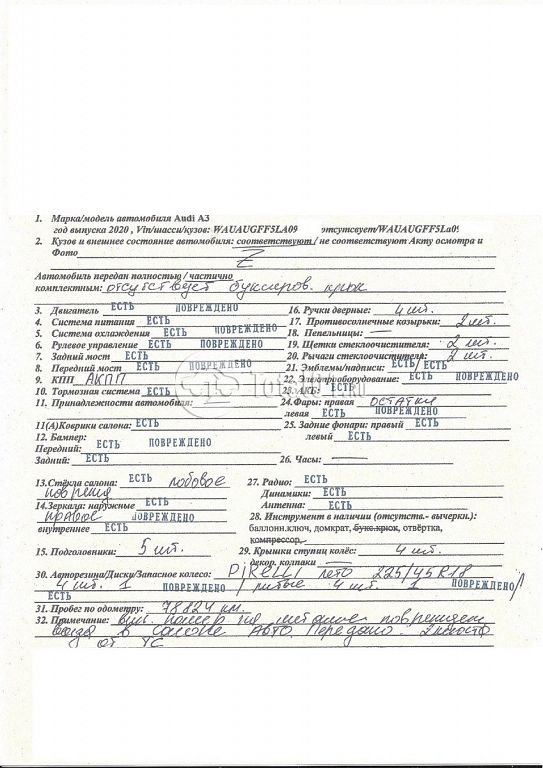 1. Марка/модель автомобиля Audi A3
год выпуска 2020 , Vin/шасси/кузов: WAUAUGFF5LA09 отсутсвует/WAUAUGFF5La09
2. Кузов и внешнее состояние автомобиля: соответствуют / не соответствуют Акту осмотра и
Фото Z
Автомобиль передан полностью / частично
комплектным: отсутствует буксиров. крюк
3. Двигатель ЕСТЬ ПОВРЕЖДЕНО 16. Ручки дверные: 4 шт.
4. Система питания ЕСТЬ 17. Противосолнечные козырьки: 2 шт.
5. Система охлаждения ЕСТЬ ПОВРЕЖДЕНО 18. Пепельницы: —
6. Рулевое управление ЕСТЬ ПОВРЕЖДЕНО 19. Щетки стеклоочистителя: 2 шт.
7. Задний мост ЕСТЬ 20. Рычаги стеклоочистителя: 2 шт.
8. Передний мост ЕСТЬ ПОВРЕЖДЕНО 21. Эмблемы/надписи: ЕСТЬ/ЕСТЬ
9. КПП АКПП 22. Электрооборудование: ЕСТЬ ПОВРЕЖДЕНО
10. Тормозная система ЕСТЬ 23. АКБ: ЕСТЬ
11. Принадлежности автомобиля: 24. Фары: правая остатки
левая ЕСТЬ ПОВРЕЖДЕНО
11(А)Коврики салона: ЕСТЬ 25. Задние фонари: правый ЕСТЬ
12. Бампер: левый ЕСТЬ
Передний: ЕСТЬ ПОВРЕЖДЕНО
Задний: ЕСТЬ 26. Часы: —
13.Стёкла салона: ЕСТЬ лобовое 27. Радио: ЕСТЬ
Динамики: ЕСТЬ
14.Зеркала: наружные ЕСТЬ Антенна: ЕСТЬ
правое ПОВРЕЖДЕНО 28. Инструмент в наличии (отсутств.- вычеркн.):
внутреннее ЕСТЬ баллонн.ключ, домкрат, букс.крюк, отвёртка,
компрессор,
15. Подголовники: 5 шт. 29. Крышки ступиц колёс: 4 шт.
декор. колпаки —
30. Авторезина/Диски/Запасное колесо: PiRELLi лето 225/45 R18
4 шт. 1 ПОВРЕЖДЕНО / литые 4 шт. 1 ПОВРЕЖДЕНО/
ЕСТЬ
31. Пробег по одометру: 78124 км.
32. Примечание: вин. номер на
в салоне Авто. Передано 2
от ТС